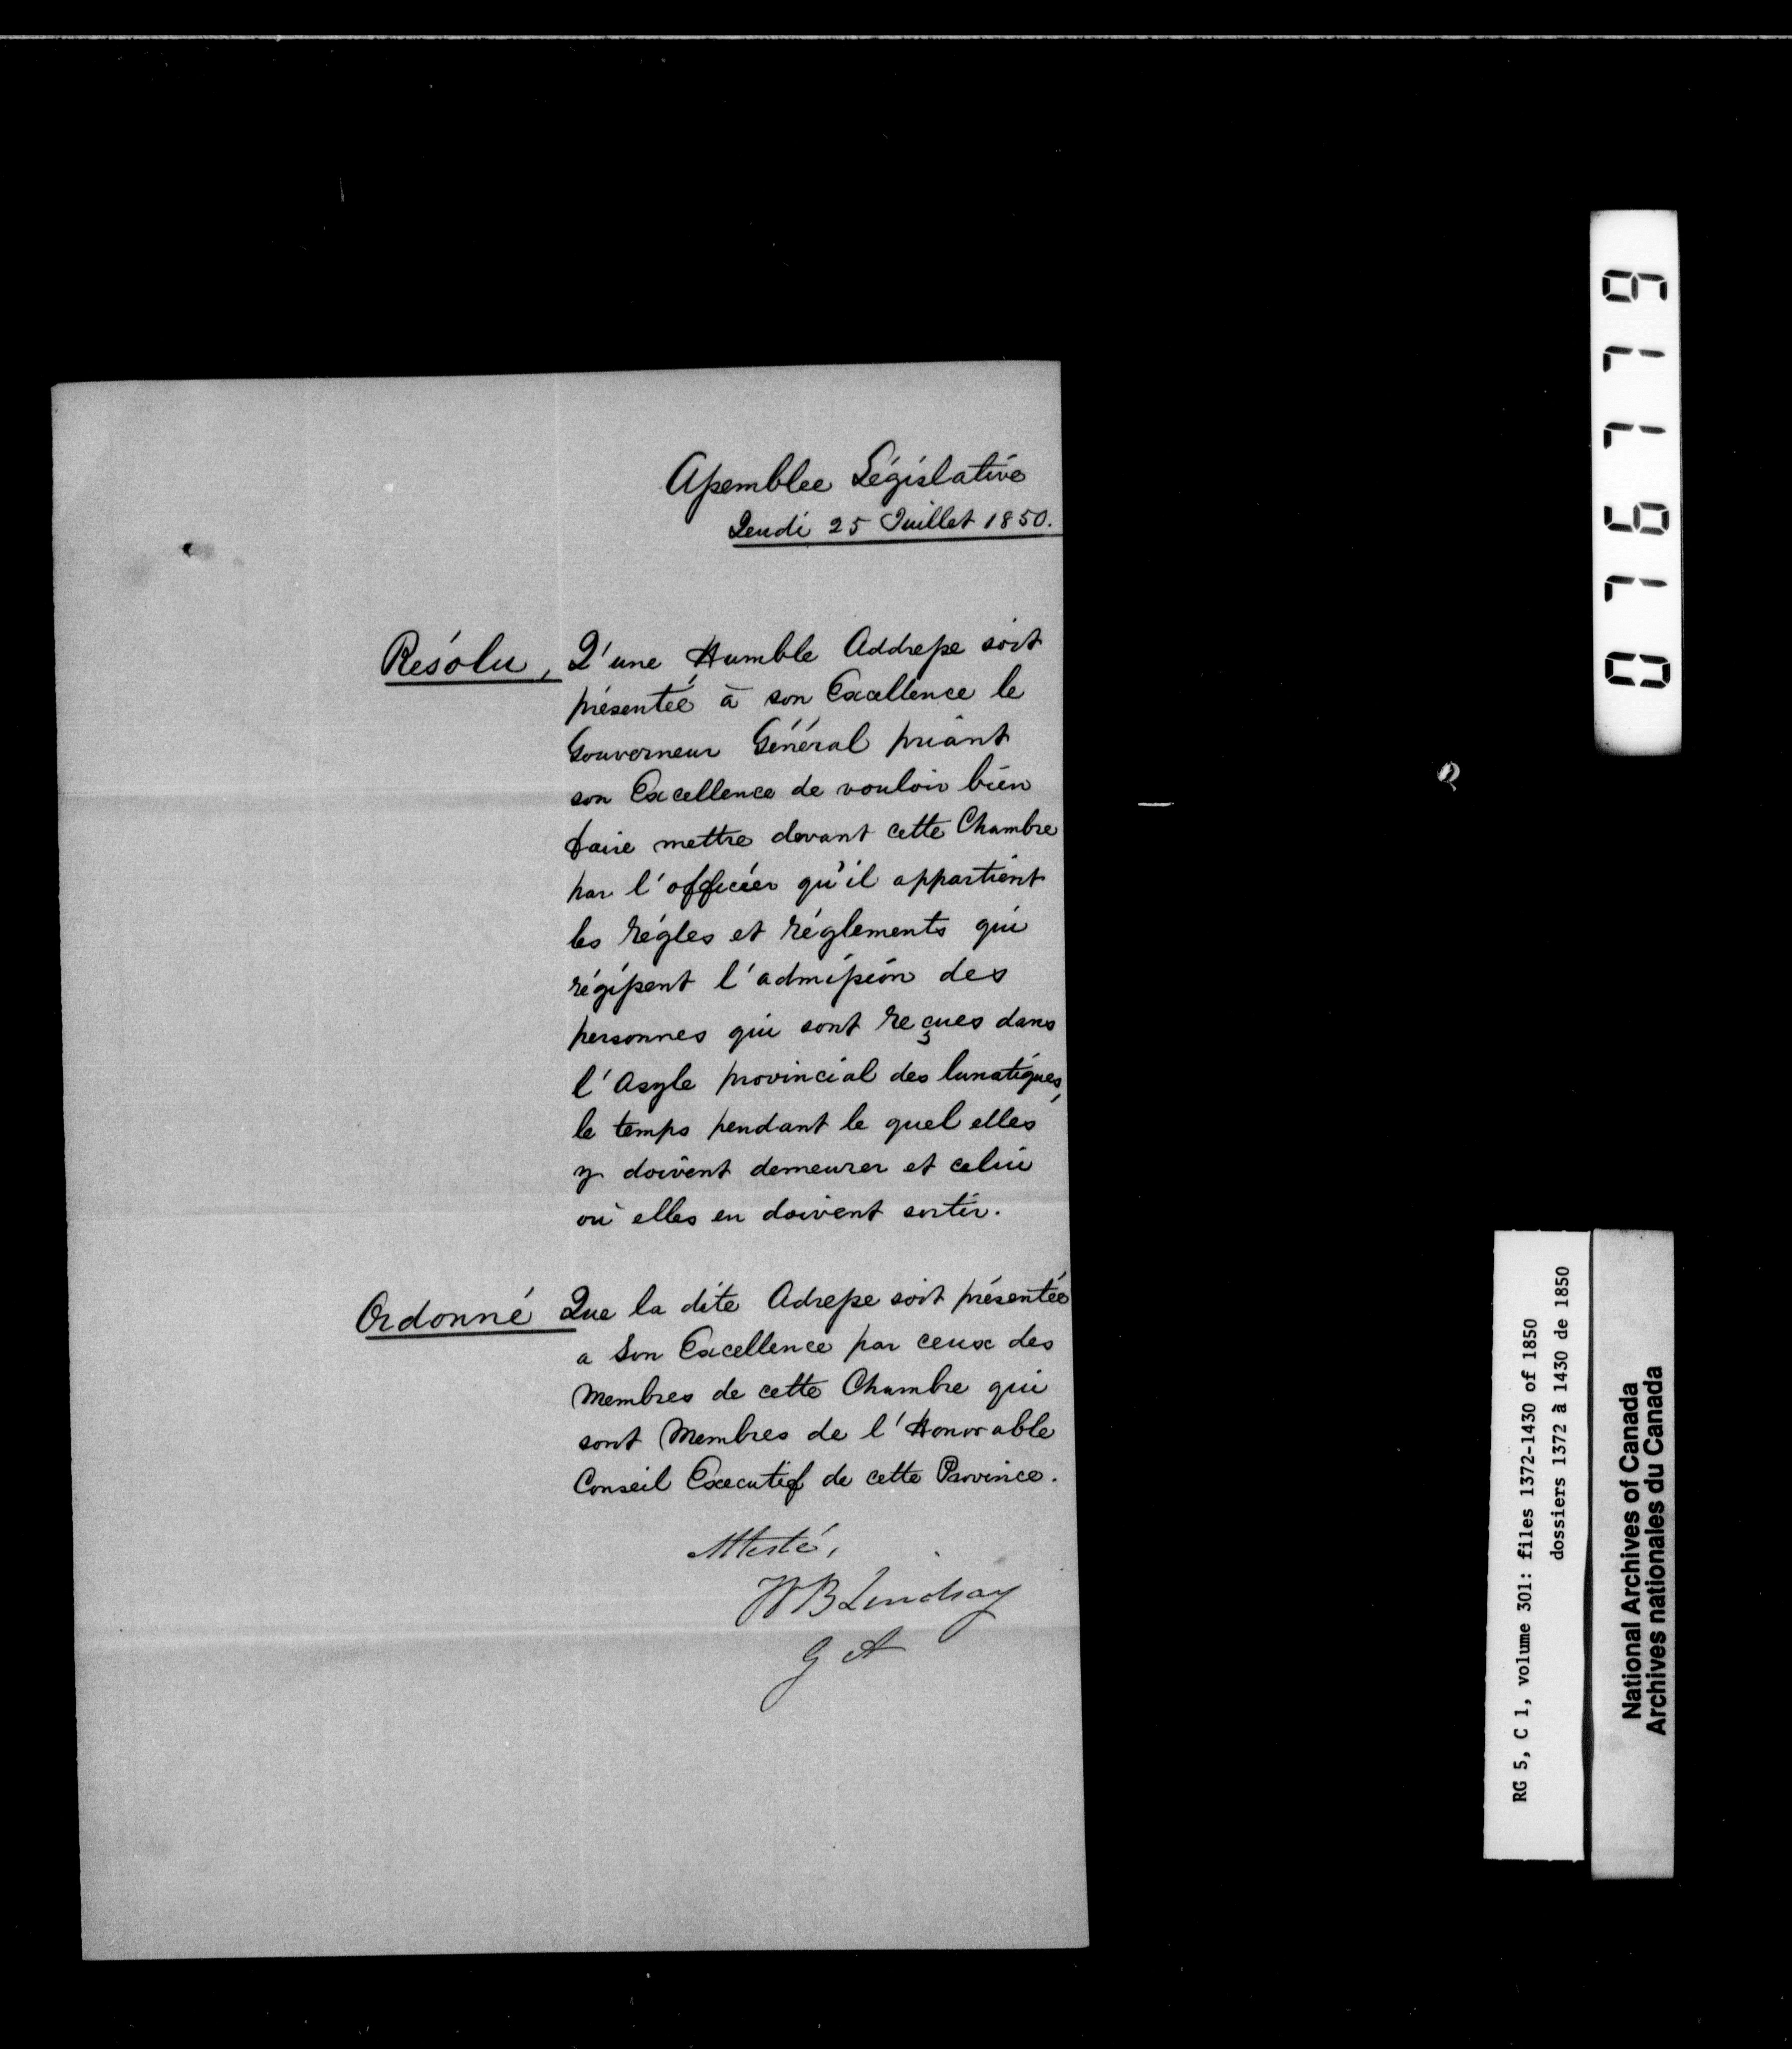 Assemblee Législative
Jeudi 25 Juillet 1850.
Résolu, Q'une Humble Addresse soit
présentée à son Excellence le
Gouverneur Général priant
son Excellence de vouloir bien
faire mettre devant cette Chambre
par l'officier qu'il appartient
les régles et réglements qui
régissent l'admission des
personnes qui sont reçues dans
l'Asyle provincial des lunatiques,
le temps pendant le quel elles
y doivent demeurer et celui
où elles en doivent sortir.
Ordonné Que la dite Adresse soit présentée
a Son Excellence par ceux des
Membres de cette Chambre qui
sont Membres de l'Honorable
Conseil Executif de cette Province.
Attesté,
W B Lindsay
G A
076779
RG 5, C 1, volume 301: files 1372-1430 of 1850
dossiers 1372 à 1430 de 1850
National Archives of Canada
Archives nationales du Canada